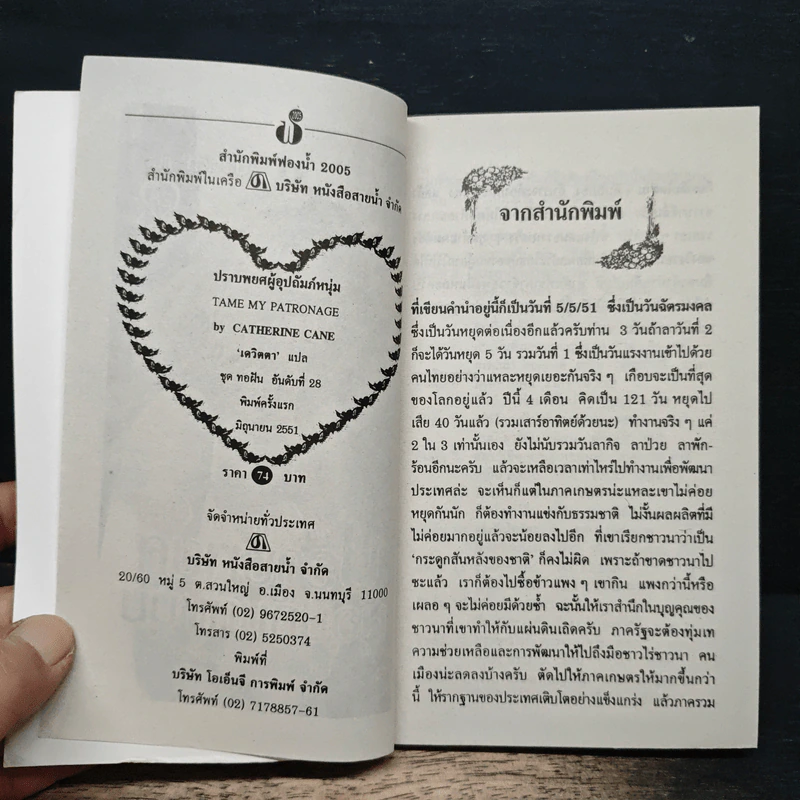 สำนักพิมพ์ฟองน้ำ 2005
สำนักพิมพ์ในเครือ บริษัท หนังสือสายน้ำ จำกัด
ปราบพยศผู้อุปถัมภ์หนุ่ม
TAME MY PATRONAGE
by CATHERINE CANE
'เดวิตตา' แปล
ชุด ทอฝัน อันดับที่ 28
พิมพ์ครั้งแรก
มิถุนายน 2551
ราคา 74 บาท
จัดจำหน่ายทั่วประเทศ
บริษัท หนังสือสายน้ำ จำกัด
20/60 หมู่ 5 ต.สวนใหญ่ อ.เมือง จ.นนทบุรี 11000
โทรศัพท์ (02) 9672520-1
โทรสาร (02) 5250374
พิมพ์ที่
บริษัท โอเอ็นจี การพิมพ์ จำกัด
โทรศัพท์ (02) 7178857-61
จากสำนักพิมพ์
ที่เขียนคำนำอยู่นี้ก็เป็นวันที่ 5/5/51 ซึ่งเป็นวันฉัตรมงคล
ซึ่งเป็นวันหยุดต่อเนื่องอีกแล้วครับท่าน 3 วันถ้าลาวันที่ 2
ก็จะได้วันหยุด 5 วัน รวมวันที่ 1 ซึ่งเป็นวันแรงงานเข้าไปด้วย
คนไทยอย่างว่าแหละหยุดเยอะกันจริง ๆ เกือบจะเป็นที่สุด
ของโลกอยู่แล้ว ปีนี้ 4 เดือน คิดเป็น 121 วัน หยุดไป
เสีย 40 วันแล้ว (รวมเสาร์อาทิตย์ด้วยนะ) ทำงานจริง ๆ แค่
2 ใน 3 เท่านั้นเอง ยังไม่นับรวมวันลากิจ ลาป่วย ลาพัก-
ร้อนอีกนะครับ แล้วจะเหลือเวลาเท่าไหร่ไปทำงานเพื่อพัฒนา
ประเทศล่ะ จะเห็นก็แต่ในภาคเกษตรน่ะแหละเขาไม่ค่อย
หยุดกันนัก ก็ต้องทำงานแข่งกับธรรมชาติ ไม่งั้นผลผลิตที่มี
ไม่ค่อยมากอยู่แล้วจะน้อยลงไปอีก ที่เขาเรียกชาวนาว่าเป็น
'กระดูกสันหลังของชาติ' ก็คงไม่ผิด เพราะถ้าขาดชาวนาไป
ซะแล้ว เราก็ต้องไปซื้อข้าวแพง ๆ เขากิน แพงกว่านี้หรือ
เผลอ ๆ จะไม่ค่อยมีด้วยซ้ำ ฉะนั้นให้เราสำนึกในบุญคุณของ
ชาวนาที่เขาทำให้กับแผ่นดินเถิดครับ ภาครัฐจะต้องทุ่มเท
ความช่วยเหลือและการพัฒนาให้ไปถึงมือชาวไร่ชาวนา คน
เมืองน่ะลดลงบ้างครับ ตัดไปให้ภาคเกษตรให้มากขึ้นกว่า
นี้ ให้รากฐานของประเทศเติบโตอย่างแข็งแกร่ง แล้วภาครวม